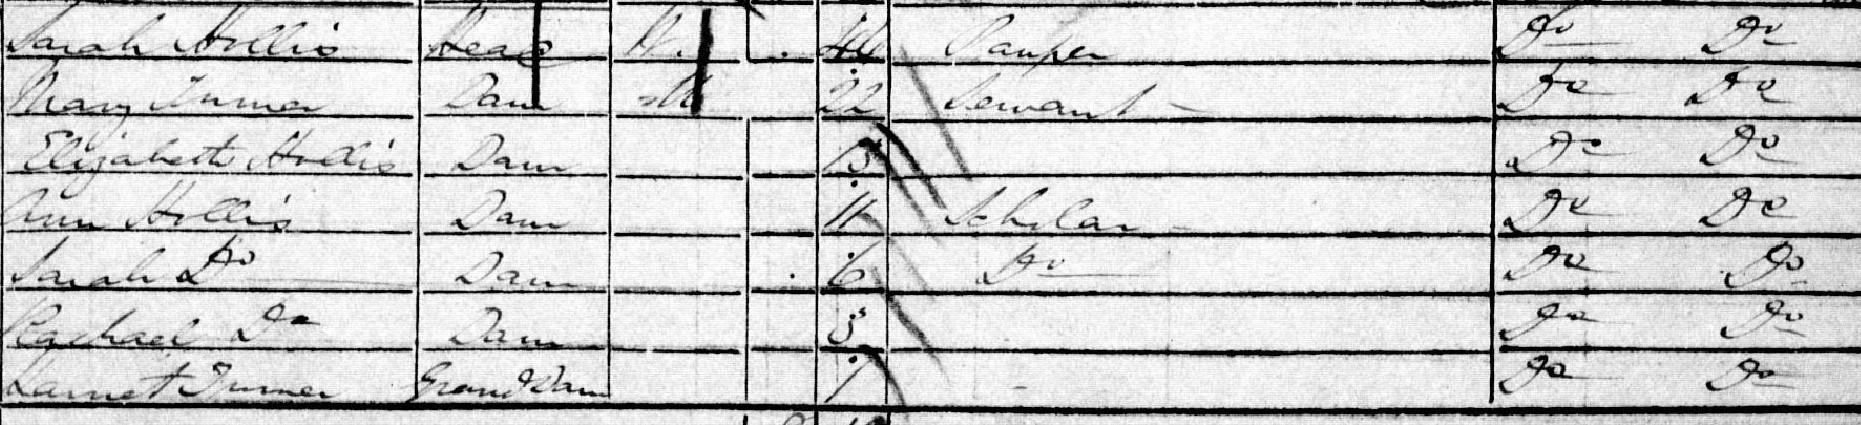 Sarah Hollis Head W. 44 Pauper Do Do
Mary Turner Daur M 22 Servant Do Do
Elizabeth Hollis Daur 15 Do Do
Ann Hollis Daur 11 Scholar Do Do
Sarah Do Daur 6 Do Do Do
Rachael Do Daur 3 Do Do
Turner GrandDaur 1 Do Do